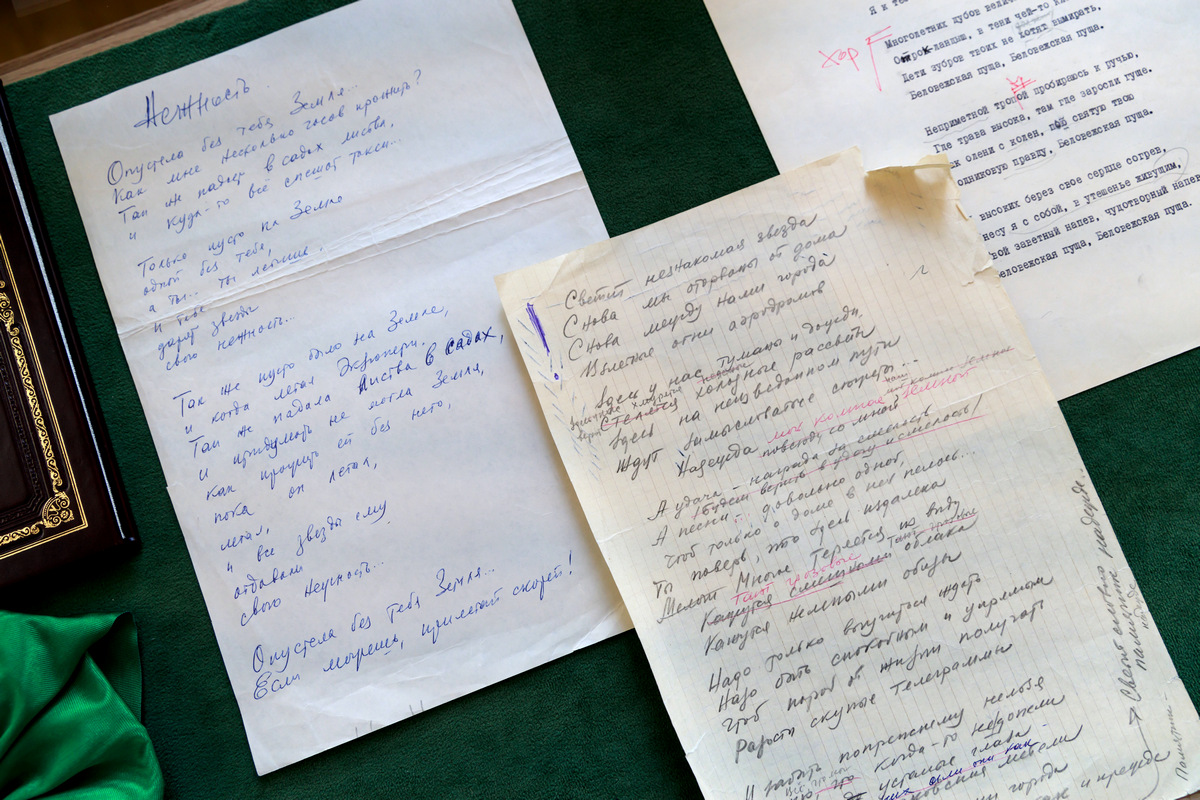 Нежность
Опустела без тебя Земля...
Как мне несколько часов прожить?
Так же падает в садах листва,
и куда-то всё спешат такси...
Только пусто на Земле
одной без тебя,
а ты... Ты летишь,
и тебе
дарят звезды
свою нежность...
Так же пусто было на Земле,
и когда летал Экзюпери.
Так же падала листва в садах,
и придумать не могла Земля,
как прожить ей без него,
пока он летал,
летал,
и все звезды ему
отдавали
свою нежность...
Опустела без тебя Земля...
Если можешь, прилетай скорей!
Светит незнакомая звезда
Снова мы оторваны от дома
Снова между нами города
Взлетные огни аэродромов
Здесь у нас туманы и дожди,
Стелятся холодные рассветы
Здесь на неизведанном пути
Ждут замысловатые сюжеты
мой компас земной
Надежда повсюду со мной
А удача – награда за смелость
Будем верить в удачу и смелость!
А песни – довольно одной,
чтоб только о доме в ней пелось...
Ты поверь, что здесь издалека
Многое теряется из виду
Тают грозовые
Тают грозовые облака
Кажутся нелепыми обиды
Надо только выучиться ждать
Надо быть спокойным и упрямым
Чтоб порой от жизни получать
Радости скупые телеграммы
И забыть попрежнему нельзя
когда-то недопели
усталые глаза
метели
города
как и прежде
Светит сквозь память надежде
хор
Я и
Многолетних дубов велич
в тени чей-то
Дети зубров твоих не хотят вымирать,
Беловежская пуща, Беловежская пуща.
Неприметной тропой пробираюсь к ручью,
Где трава высока, там где заросли гуще.
к олени с колен, пью святую твою
одниковую правду, Беловежская пуща.
высоких берез свое сердце согрев,
несу я с собой, в утешенье живущим,
вой заветный напев, чудотворный напев
еловежская пуща, Беловежская пуща.